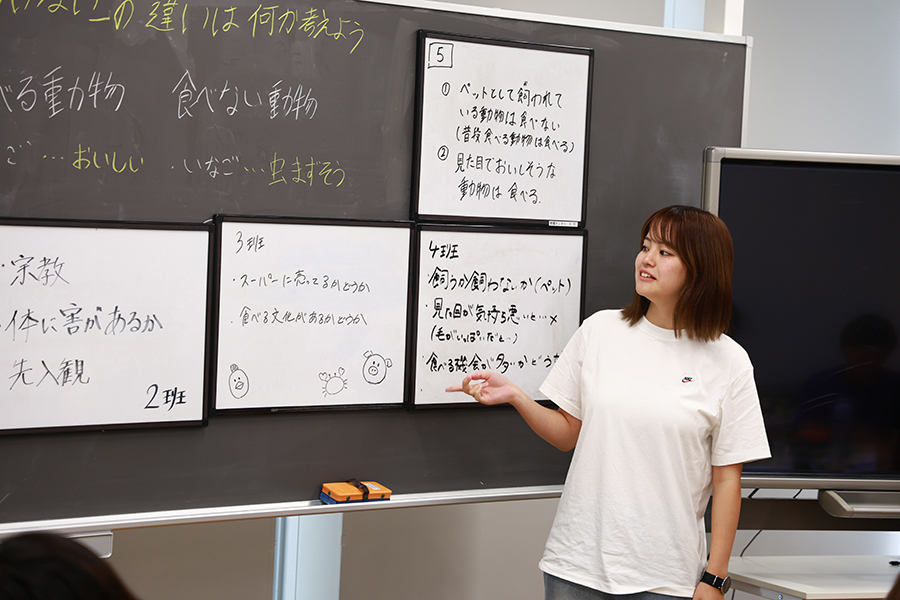 この違いは何か考えよう
べる動物　食べない動物
ご…おいしい　・いなご…虫まずそう
5
① ペットとして飼われて
いる動物は食べない
(普段食べる動物は食べる)
② 見た目でおいしそうな
動物は食べる.
・宗教
・体に害があるか
先入観
2班
3班
・スーパーに売ってるかどうか
・食べる文化があるかどうか
4班
・飼うか飼わないか(ペット)
・見た目が気持ち悪いと…×
(毛がいっぱいだと…)
・食べる機会が多いかどう